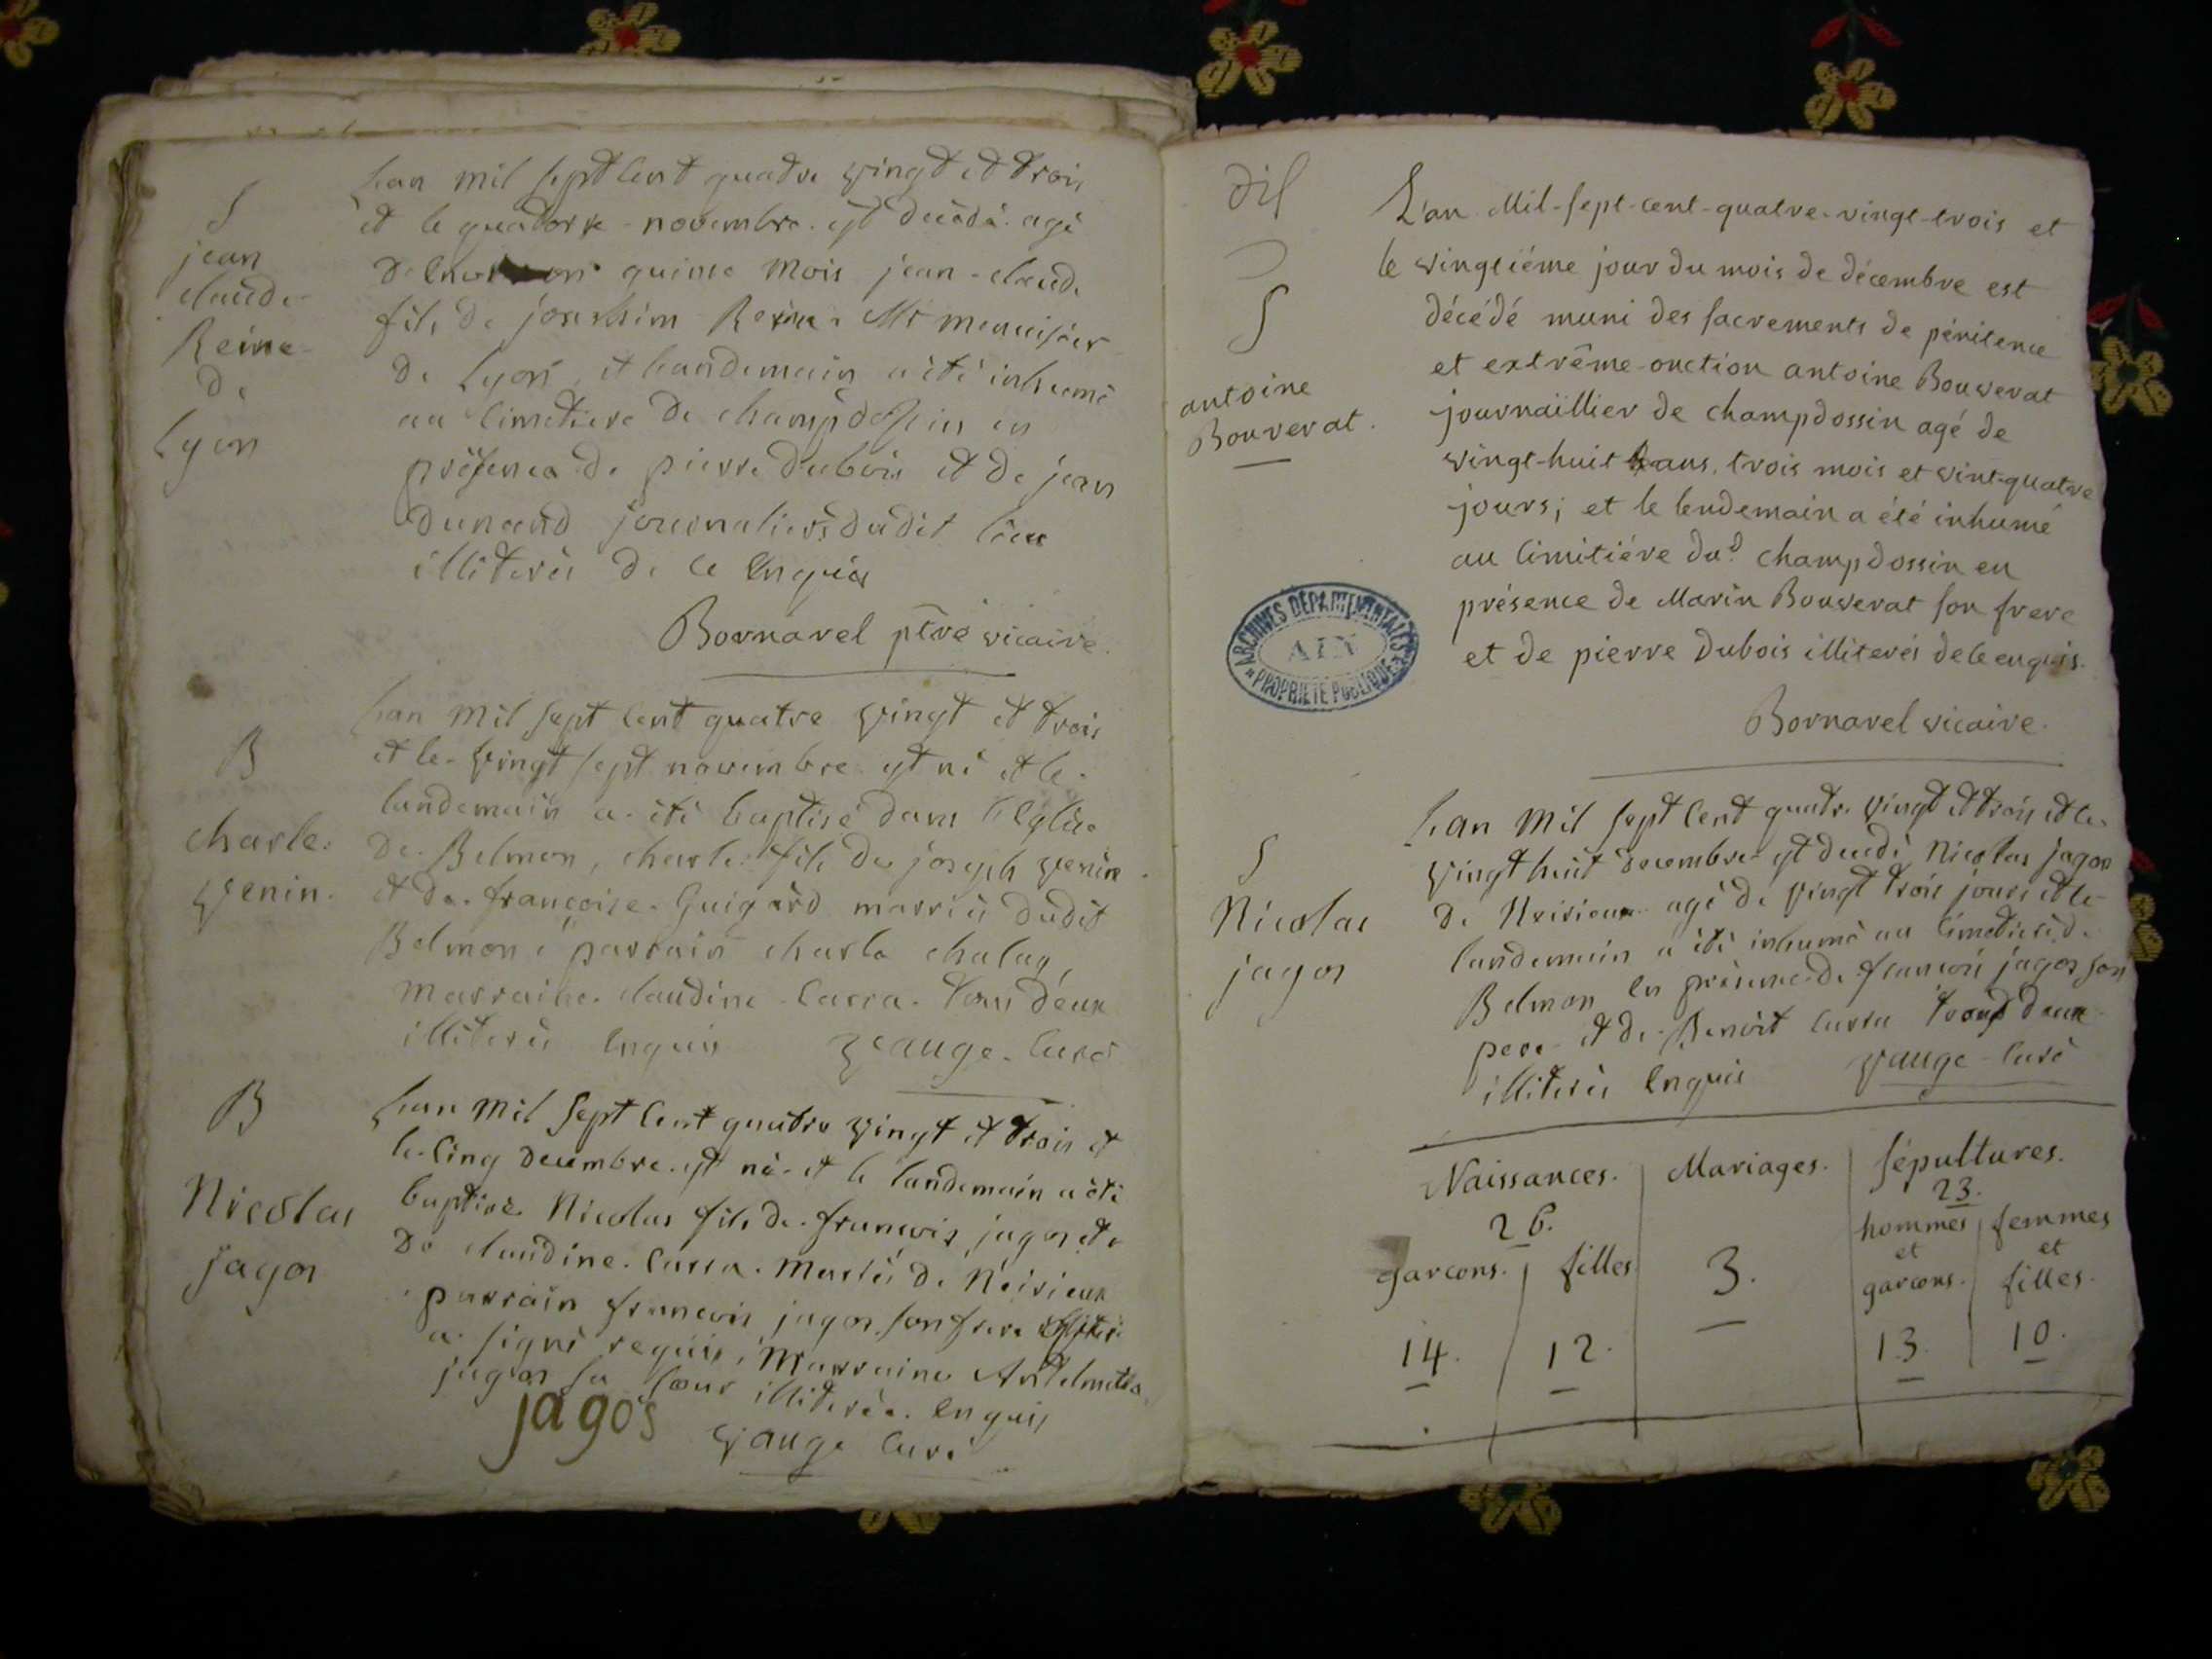 S
jean
claude
Reine
de
Lyon
Lan mil sept cent quatre vingt et trois
et le quatorze novembre est decedé agé
quinse mois jean claude
fils de Reine Mt menuisier
de Lyon, et landemain a été inhumé
au cimetiere de champdossin en
présence de pierre dubois et de jean
dunand journaliers dudit lieu
illiterés de ce Enquis
Bornarel ptre vicaire.
B
charle
venin.
Lan mil sept cent quatre vingt et trois
et le vingt sept novembre est né et le
landemain a été baptisé dans l'Eglise
de Belmon, charle fils de joseph venin
et de francoise Guigard mariés dudit
Belmon parrain charle chalay,
marraine claudine Carra tous deux
illiterés Enquis vauge Curé
B
Nicolas
jagos
Lan mil sept cent quatre vingt et trois et
le cinq decembre est né et le landemain a été
baptisé Nicolas fils de francois jagos et
de claudine Carra mariés de Neirieux
parrain francois jagos son frere
a signé requis, Marraine Antelmette
jagos sa soeur illiterée Enquis
jagos
vauge Curé
dil
S
antoine
Bouverat.
L'an Mil-sept-cent-quatre-vingt-trois et
le vingtiéme jour du mois de décembre est
décédé muni des sacrements de pénitence
et extrême-onction antoine Bouverat
journaillier de champdossin agé de
vingt-huit ans, trois mois et vint-quatre
jours; et le lendemain a été inhumé
au cimitiére dud champdossin en
présence de Marin Bouverat son frere
et de pierre Dubois illiterés de ce enquis.
Bornarel vicaire.
ARCHIVES DÉPARTEMENTALES
AIN
PROPRIÉTÉ PUBLIQUE
S
Nicolas
jagos
Lan mil sept cent quatre vingt et trois et le
vingt huit decembre est decedé Nicolas jagos
de Neirieux agé de vingt trois jours et le
landemain a été inhumé au cimetiere de
Belmon en présence de francois jagos son
pere et de Benoit Carra tous deux
illiterés Enquis vauge Curé
Naissances. Mariages. sépultures.
26. 23.
garcons. filles. 3. hommes et garcons. femmes et filles.
14. 12. 13. 10.